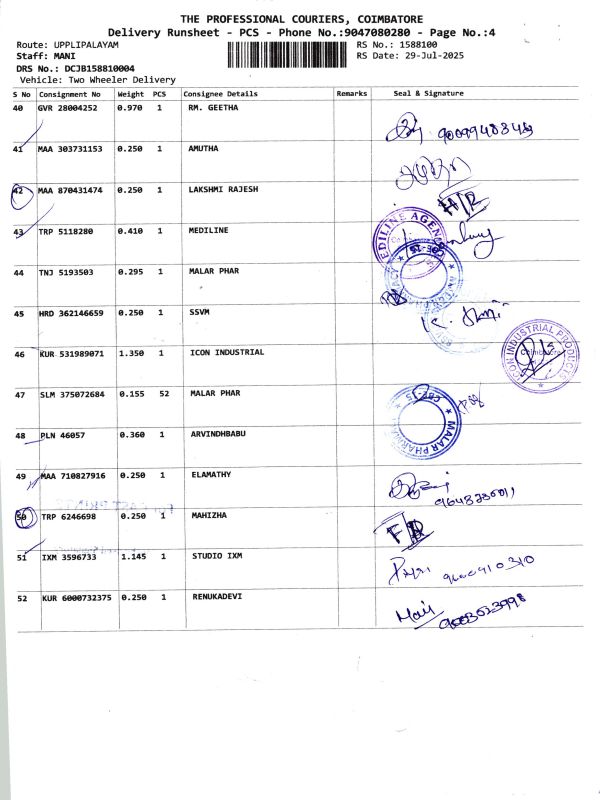 THE PROFESSIONAL COURIERS, COIMBATORE
Delivery Runsheet - PCS - Phone No.:9047080280 - Page No.:4
Route: UPPLIPALAYAM RS No.: 1588100
Staff: MANI RS Date: 29-Jul-2025
DRS No.: DCJB158810004
Vehicle: Two Wheeler Delivery
S No Consignment No Weight PCS Consignee Details Remarks Seal & Signature
40 GVR 28004252 0.970 1 RM. GEETHA
41 MAA 303731153 0.250 1 AMUTHA
42 MAA 870431474 0.250 1 LAKSHMI RAJESH
43 TRP 5118280 0.410 1 MEDILINE
44 TNJ 5193503 0.295 1 MALAR PHAR
45 HRD 362146659 0.250 1 SSVM
46 KUR 531989071 1.350 1 ICON INDUSTRIAL
ICON INDUSTRIAL PRODUCTS
Coimbatore
47 SLM 375072684 0.155 52 MALAR PHAR
MALAR PHARMACY
48 PLN 46057 0.360 1 ARVINDHBABU
49 MAA 710827916 0.250 1 ELAMATHY
50 TRP 6246698 0.250 1 MAHIZHA
51 IXM 3596733 1.145 1 STUDIO IXM
9600410310
52 KUR 6000732375 0.250 1 RENUKADEVI